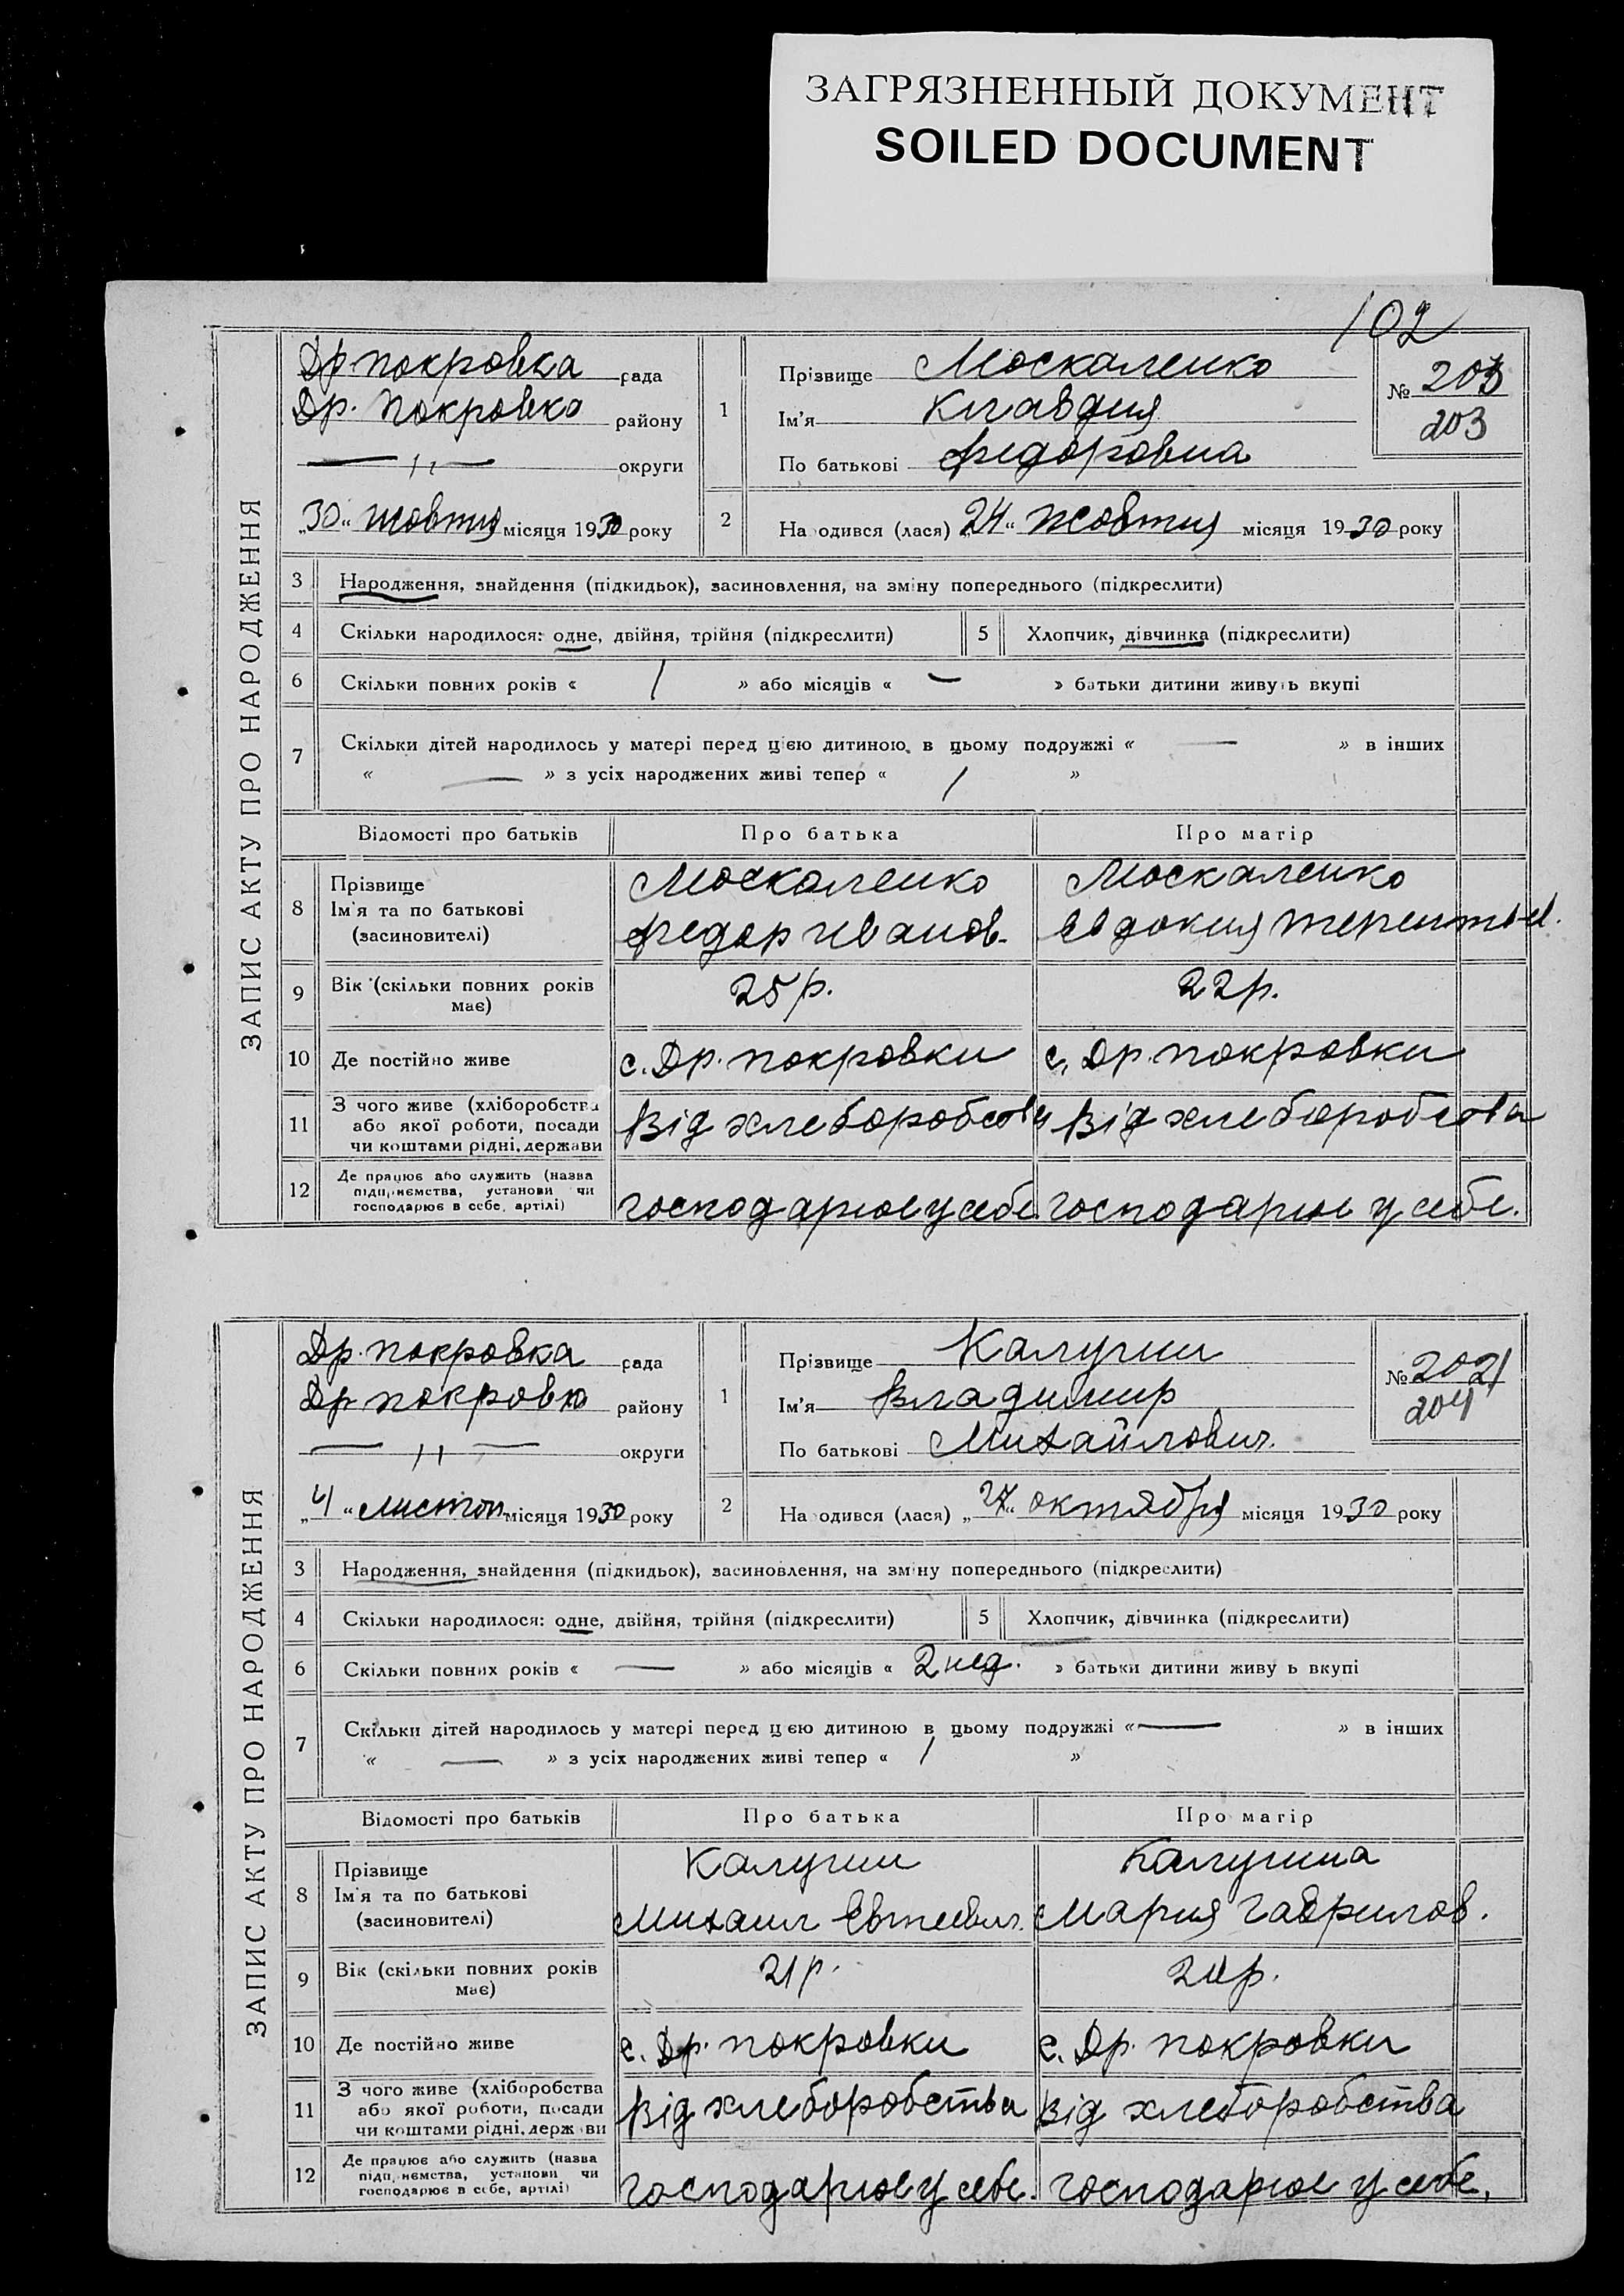 ЗАГРЯЗНЕННЫЙ ДОКУМЕНТ
SOILED DOCUMENT
102
ЗАПИС АКТУ ПРО НАРОДЖЕННЯ
Др покровка рада
Др. Покровка району
— 〃 — округи
„30“ жовтня місяця 1930 року
1 Прізвище Москаленко
Ім'я Клавдия
По батькові Федоровна
№ 203
203
2 Народився (лася) „24“ жовтня місяця 1930 року
3 Народження, знайдення (підкидьок), засиновлення, на зміну попереднього (підкреслити)
4 Скільки народилося: одне, двійня, трійня (підкреслити) 5 Хлопчик, дівчинка (підкреслити)
6 Скільки повних років « 1 » або місяців « — » батьки дитини живуть вкупі
7 Скільки дітей народилось у матері перед цією дитиною в цьому подружжі « — » в інших
« — » з усіх народжених живі тепер « 1 »
Відомості про батьків Про батька Про матір
8 Прізвище
Ім'я та по батькові
(засиновителі)
Москаленко
Федор Иванов.
Москаленко
Евдокия Терентьев.
9 Вік (скільки повних років
має)
25 р. 22 р.
10 Де постійно живе с. Др. покровки с. Др. покровки
11 З чого живе (хліборобства
або якої роботи, посади
чи коштами рідні, держави
Від хлеборобсова Від хлеборобсова
12 Де працює або служить (назва
підприємства, установи чи
господарює в себе, артілі)
господарює у себе. господарює у себе.
ЗАПИС АКТУ ПРО НАРОДЖЕННЯ
Др. покровка рада
Др покровка району
— 〃 — округи
„4“ листоп місяця 1930 року
1 Прізвище Калугин
Ім'я Владимир
По батькові Михайлович.
№ 202
204
2 Народився (лася) „27“ октября місяця 1930 року
3 Народження, знайдення (підкидьок), засиновлення, на зміну попереднього (підкреслити)
4 Скільки народилося: одне, двійня, трійня (підкреслити) 5 Хлопчик, дівчинка (підкреслити)
6 Скільки повних років « — » або місяців « 2 нед. » батьки дитини живу ь вкупі
7 Скільки дітей народилось у матері перед цією дитиною в цьому подружжі « — » в інших
« — » з усіх народжених живі тепер « 1 »
Відомості про батьків Про батька Про матір
8 Прізвище
Ім'я та по батькові
(засиновителі)
Калугин
Михаил
Калугина
Мария Гаврилов.
9 Вік (скільки повних років
має)
21 р. 20 р.
10 Де постійно живе с. Др. покровки с. Др. покровки
11 З чого живе (хліборобства
або якої роботи, посади
чи коштами рідні, держави
Від хлеборобства Від хлеборобства
12 Де працює або служить (назва
підприємства, установи чи
господарює в себе, артілі)
господарює у себе. господарює у себе,